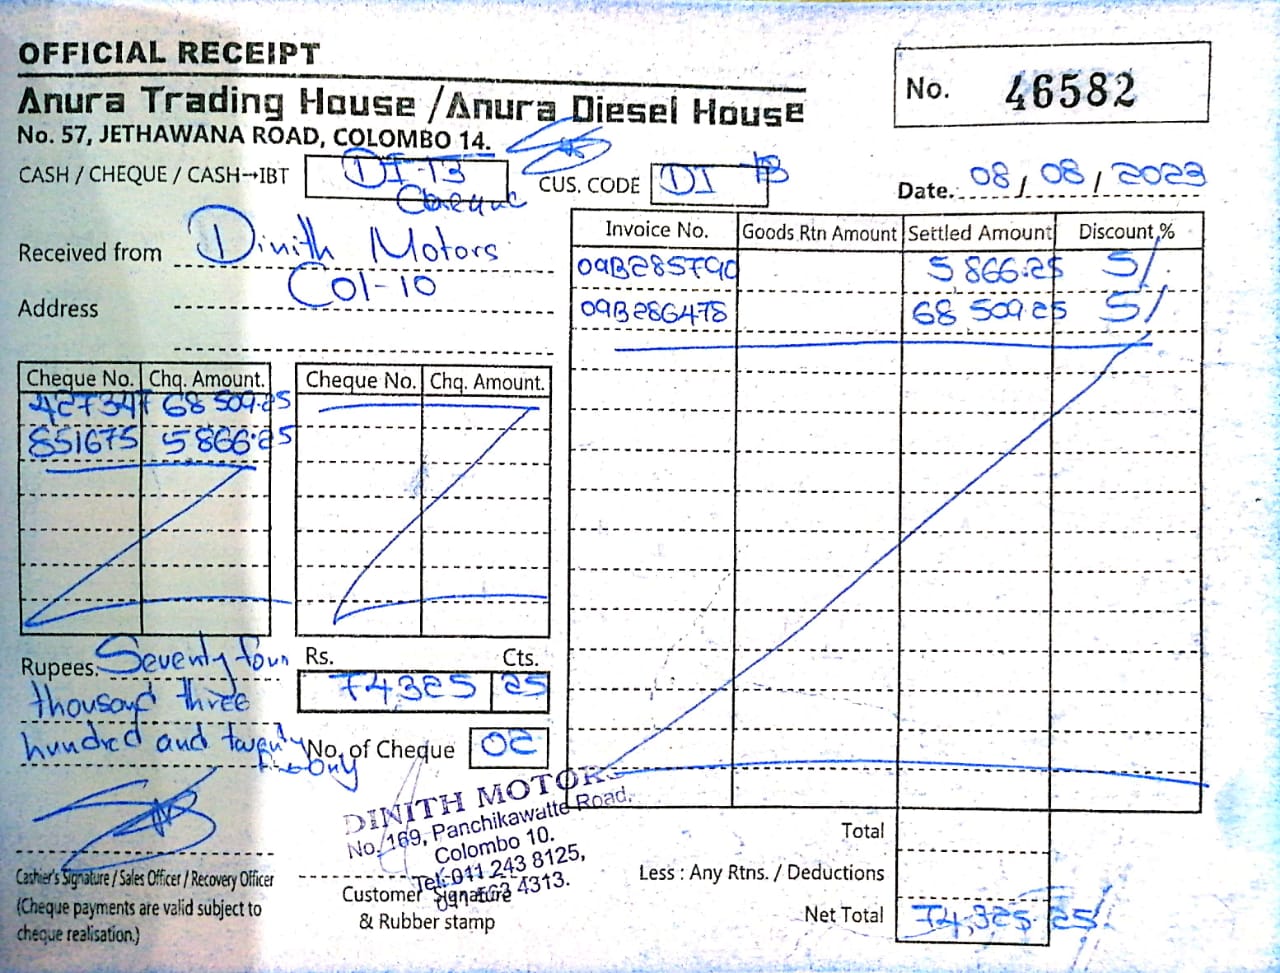 OFFICIAL RECEIPT
Anura Trading House / Anura Diesel House
No. 57, JETHAWANA ROAD, COLOMBO 14.
No. 46582
CASH / CHEQUE / CASH→IBT DI-13
Cheque
CUS. CODE DI 13
Date. 08/08/2023
Received from Dinith Motors
Address Col-10
Invoice No. Goods Rtn Amount Settled Amount Discount %
09B285790 5 866.25 5/.
09B286478 68 509.25 5/
Cheque No. Chq. Amount. Cheque No. Chq. Amount.
427347 68 509.25
851675 5 866.25
Rupees. Seventy four
thousand three
hundred and twenty
five Only
Rs. Cts.
74,325 25
No. of Cheque 02
DINITH MOTORS
No. 169, Panchikawatte Road,
Colombo 10.
Tel: 011 243 8125,
4313.
Cashier's Signature / Sales Officer / Recovery Officer
(Cheque payments are valid subject to
cheque realisation.)
Customer Signature
& Rubber stamp
Total
Less : Any Rtns. / Deductions
Net Total 74,325 25/.